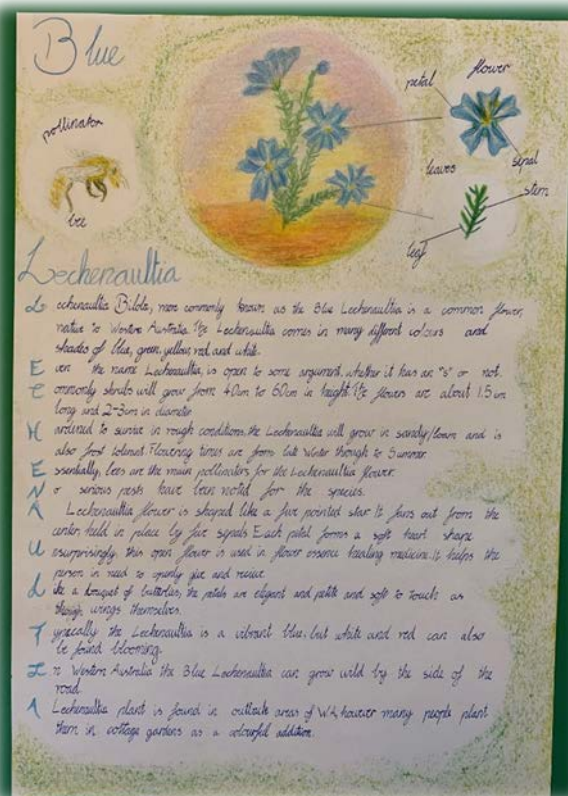 Blue
petal
flower
pollinator
leaves
sepal
stem
bee
leaf
Lechenaultia
Lechenaultia Biloba, more commonly known as the Blue Lechenaultia is a common flower,
native to Western Australia. The Lechenaultia comes in many different colours and
shades of blue, green, yellow, red and white.
Even the name Lechenaultia, is open to some argument, whether it has an "s" or not.
Commonly shrubs will grow from 40cm to 60cm in height. The flowers are about 1.5cm
long and 2-3cm in diameter
Hardened to survive in rough conditions, the Lechenaultia will grow in sandy/loam and is
also frost tolerant. Flowering times are from late Winter through to Summer.
Essentially, bees are the main pollinators for the Lechenaultia flower.
No serious pests have been noted for the species.
A Lechenaultia flower is shaped like a five pointed star. It fans out from the
center, held in place by five sepals. Each petal forms a soft heart shape
Unsurprisingly, this open flower is used in flower essence healing medicine. It helps the
person in need to openly give and receive.
Like a bouquet of butterflies, the petals are elegant and petite and soft to touch as
though wings themselves.
Typically the Lechenaultia is a vibrant blue, but white and red can also
be found blooming.
In Western Australia the Blue Lechenaultia can grow wild by the side of the
road.
A Lechenaultia plant is found in outback areas of W.A, however many people plant
them in cottage gardens as a colourful addition.